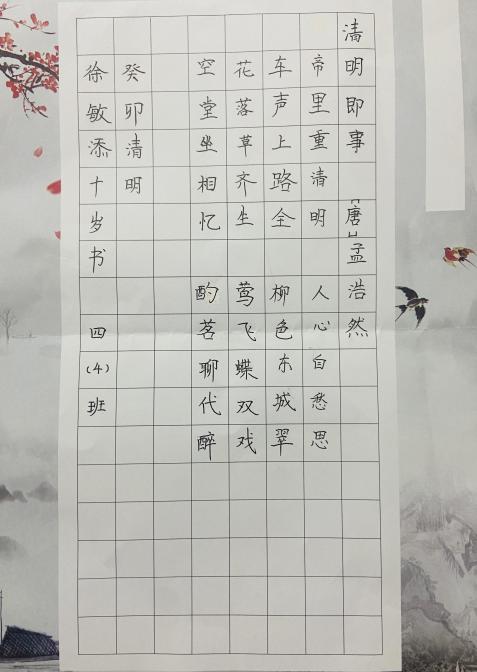 清明即事[唐]孟浩然
帝里重清明 人心自愁思
车声上路全 柳色东城翠
花落草齐生 莺飞蝶双戏
空堂坐相忆 酌茗聊代醉
癸卯清明
徐敏添十岁书 四(4)班